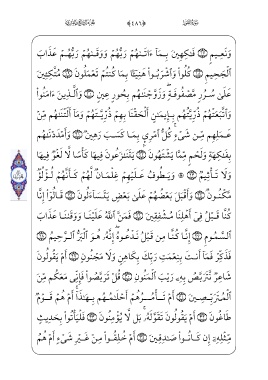 وَنَعِيمٍ فَٰكِهِينَ بِمَآ ءَاتَىٰهُمْ رَبُّهُمْ وَوَقَىٰهُمْ رَبُّهُمْ عَذَابَ
ٱلْجَحِيمِ كُلُوا۟ وَٱشْرَبُوا۟ هَنِيٓـًٔۢا بِمَا كُنتُمْ تَعْمَلُونَ مُتَّكِـِٔينَ
عَلَىٰ سُرُرٍ مَّصْفُوفَةٍ وَزَوَّجْنَٰهُم بِحُورٍ عِينٍ وَٱلَّذِينَ ءَامَنُوا۟
وَٱتَّبَعَتْهُمْ ذُرِّيَّتُهُم بِإِيمَٰنٍ أَلْحَقْنَا بِهِمْ ذُرِّيَّتَهُمْ وَمَآ أَلَتْنَٰهُم مِّنْ
عَمَلِهِم مِّن شَىْءٍ كُلُّ ٱمْرِئٍۭ بِمَا كَسَبَ رَهِينٌ وَأَمْدَدْنَٰهُم
بِفَٰكِهَةٍ وَلَحْمٍ مِّمَّا يَشْتَهُونَ يَتَنَٰزَعُونَ فِيهَا كَأْسًا لَّا لَغْوٌ فِيهَا
وَلَا تَأْثِيمٌ وَيَطُوفُ عَلَيْهِمْ غِلْمَانٌ لَّهُمْ كَأَنَّهُمْ لُؤْلُؤٌ
مَّكْنُونٌ وَأَقْبَلَ بَعْضُهُمْ عَلَىٰ بَعْضٍ يَتَسَآءَلُونَ قَالُوٓا۟ إِنَّا
كُنَّا قَبْلُ فِىٓ أَهْلِنَا مُشْفِقِينَ فَمَنَّ ٱللَّهُ عَلَيْنَا وَوَقَىٰنَا عَذَابَ
ٱلسَّمُومِ إِنَّا كُنَّا مِن قَبْلُ نَدْعُوهُ إِنَّهُۥ هُوَ ٱلْبَرُّ ٱلرَّحِيمُ
فَذَكِّرْ فَمَآ أَنتَ بِنِعْمَتِ رَبِّكَ بِكَاهِنٍ وَلَا مَجْنُونٍ أَمْ يَقُولُونَ
شَاعِرٌ نَّتَرَبَّصُ بِهِۦ رَيْبَ ٱلْمَنُونِ قُلْ تَرَبَّصُوا۟ فَإِنِّى مَعَكُم مِّنَ
ٱلْمُتَرَبِّصِينَ أَمْ تَأْمُرُهُمْ أَحْلَٰمُهُم بِهَٰذَآ أَمْ هُمْ قَوْمٌ
طَاغُونَ أَمْ يَقُولُونَ تَقَوَّلَهُۥ بَل لَّا يُؤْمِنُونَ فَلْيَأْتُوا۟ بِحَدِيثٍ
مِّثْلِهِۦٓ إِن كَانُوا۟ صَٰدِقِينَ أَمْ خُلِقُوا۟ مِنْ غَيْرِ شَىْءٍ أَمْ هُمُ